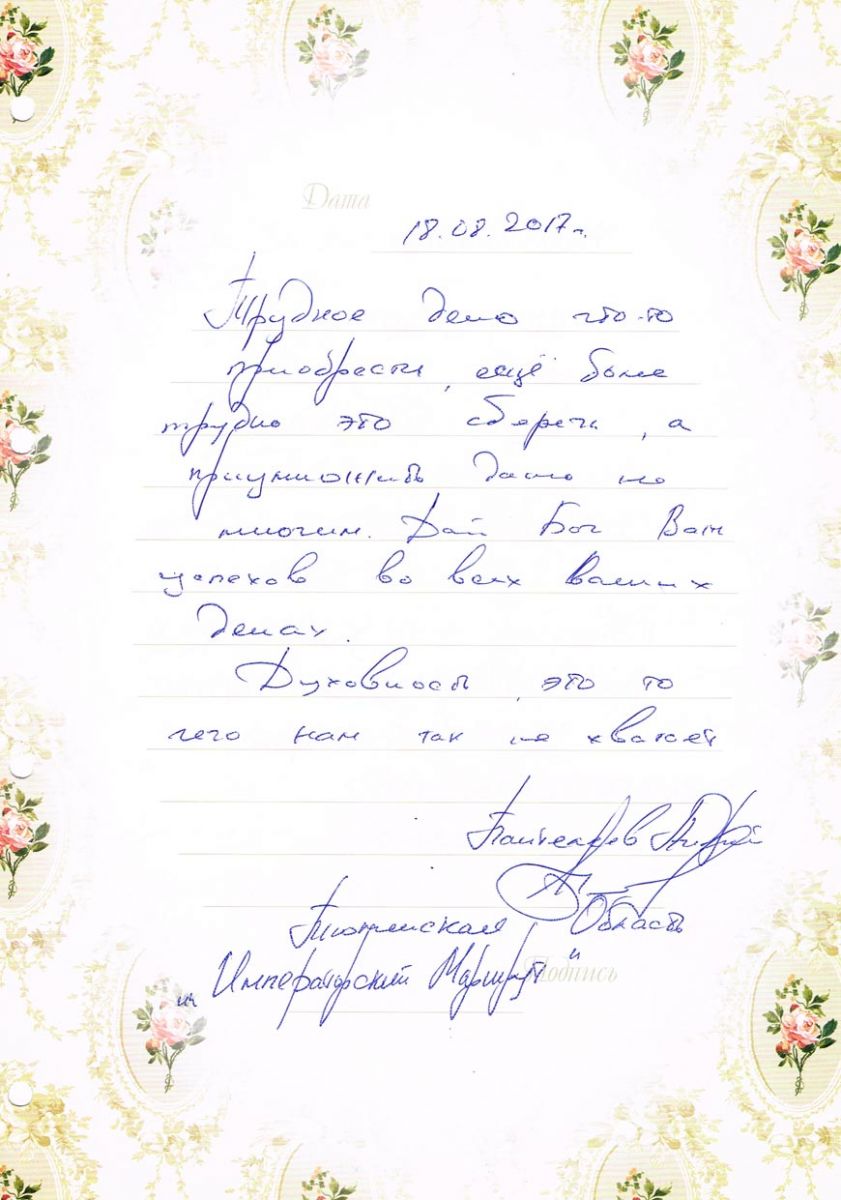 Дата
18.08.2017г.
Трудное дело что-то
приобрести, ещё более
трудно это сберечь, а
приумножить дано не
многим. Дай Бог Вам
успехов во всех ваших
делах.
Духовность, это то
чего нам так не хватает
Андрей
Тюменская Область
"Императорский Маршрут"
Подпись